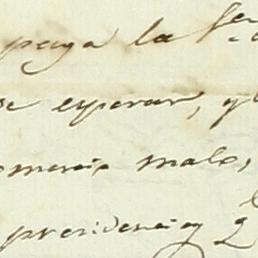 paga la
se esperar, y
omercio malo,
presidencia y